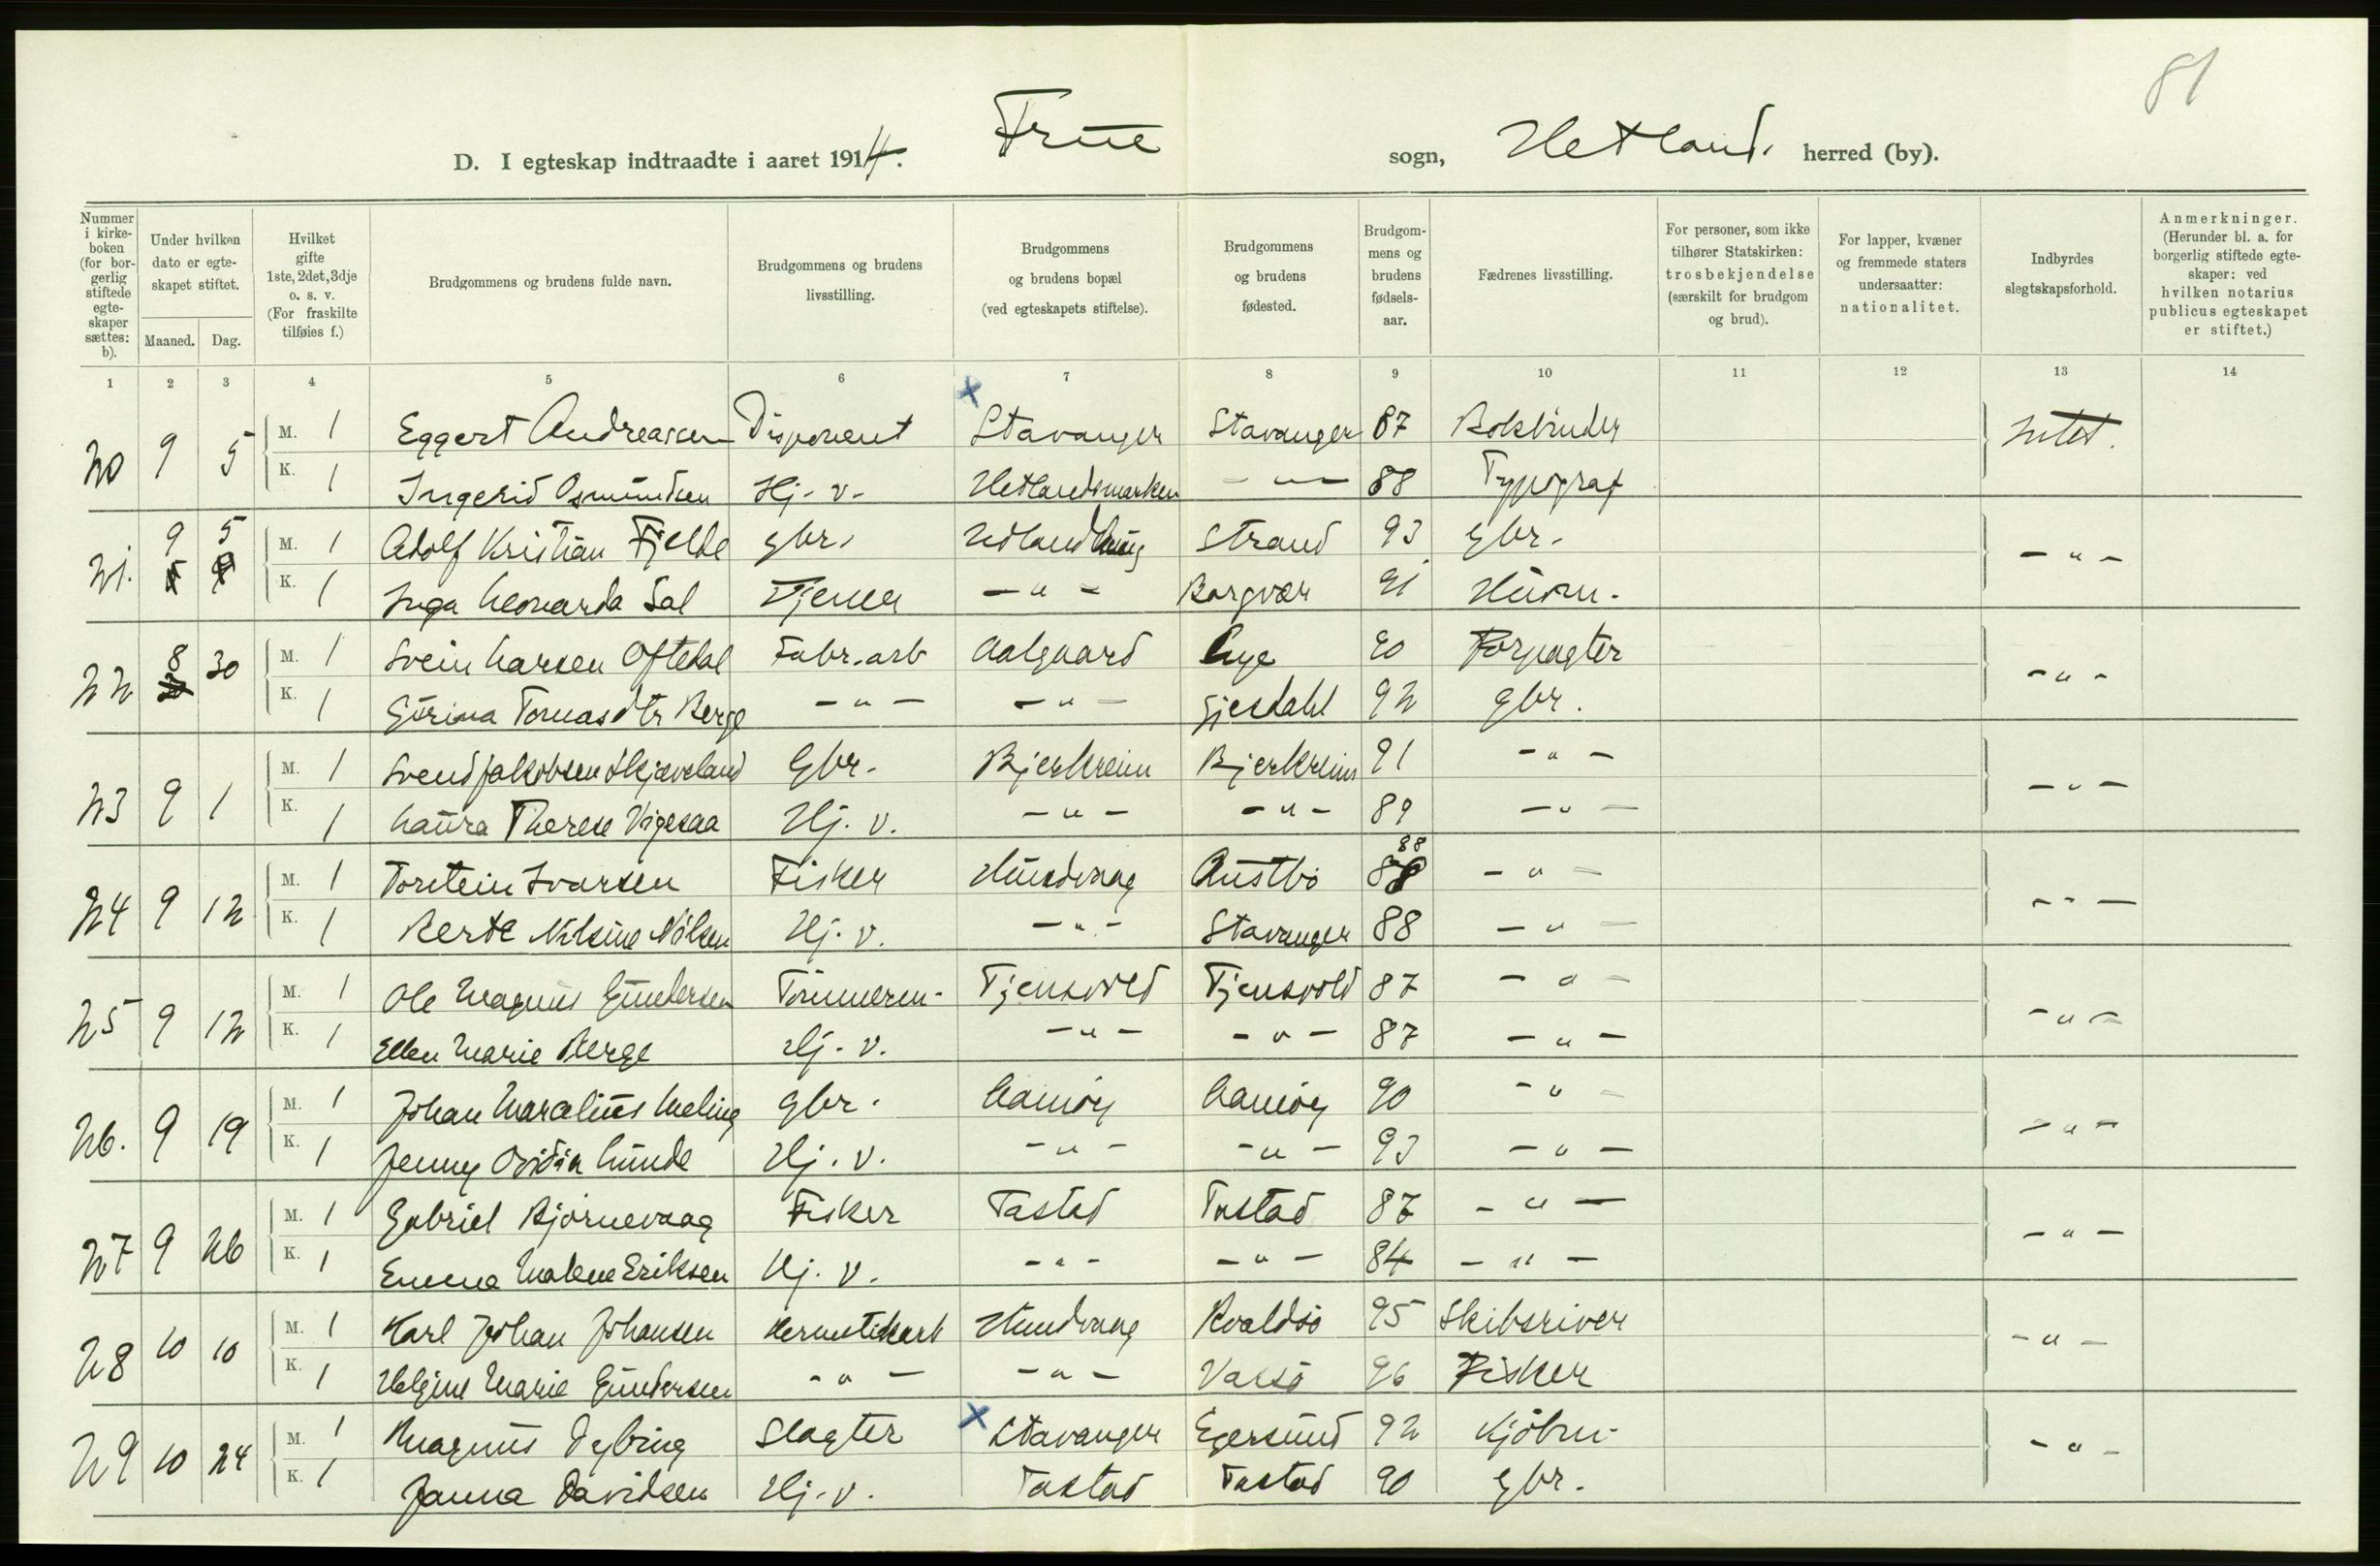 81
D. I egteskap indtraadte i aaret 1914. Frue sogn, Hetland. herred (by).
Nummer i kirkeboken (for borgerlig stiftede egteskaper sættes: b).
Under hvilken dato er egteskapet stiftet.
Maaned. Dag.
Hvilket gifte 1ste, 2det, 3dje o. s. v. (For fraskilte tilføies f.)
Brudgommens og brudens fulde navn.
Brudgommens og brudens livsstilling.
Brudgommens og brudens bopæl (ved egteskapets stiftelse).
Brudgommens og brudens fødested.
Brudgommens og brudens fødselsaar.
Fædrenes livsstilling.
For personer, som ikke tilhører Statskirken: trosbekjendelse (særskilt for brudgom og brud).
For lapper, kvæner og fremmede staters undersaatter: nationalitet.
Indbyrdes slegtskapsforhold.
Anmerkninger. (Herunder bl. a. for borgerlig stiftede egteskaper: ved hvilken notarius publicus egteskapet er stiftet.)
1 2 3 4 5 6 7 8 9 10 11 12 13 14
20 9 5 M. 1 Eggert Andreassen Disponent Stavanger Stavanger 87 Bokbinder Intet.
K. 1 Ingerid Osmundsen Hj. v. Hetlandsmarken - " - 88 Typograf
21. 9 5 M. 1 Adolf Kristian Fjelde gbr. Strand 93 gbr. - " -
K. 1 Inga Leonarda Sal Tjener - " - Borgvær 91 Husm.
22 8 30 M. 1 Svein Larsen Oftedal Fabr. arb Aalgaard Lye 90 Forpagter - " -
K. 1 Gurina Tomasdtr Berge - " - - " - Gjesdahl 92 gbr.
23 9 1 M. 1 Svend Jakobsen Skjæveland Gbr. Bjerkreim Bjerkreim 91 - " - - " -
K. 1 Laura Therese Vigesaa Hj. v. - " - - " - 89 - " -
24 9 12 M. 1 Torstein Ivarsen Fisker Hundvaag Austbø 88 - " - - " -
K. 1 Berte Nilsine Nilsen Hj. v. - " - Stavanger 88 - " -
25 9 12 M. 1 Ole Magnus Gundersen Tømmerm. Tjensvold Tjensvold 87 - " - - " -
K. 1 Ellen Marie Berge Hj. v. - " - - " - 87 - " -
26. 9 19 M. 1 Johan Marelius Meling gbr. Lamøy Lamøy 90 - " - - " -
K. 1 Jenny Ovidia Lunde Hj. v. - " - - " - 93 - " -
27 9 26 M. 1 Gabriel Bjørnevaag Fisker Tastad Tastad 87 - " - - " -
K. 1 Emma Malene Eriksen Hj. v. - " - - " - 84 - " -
28 10 10 M. 1 Karl Johan Johansen Hermetikarb Hundvaag Roaldsø 95 Skibsriver - " -
K. 1 Helgine Marie Gundersen - " - - " - Vassø 96 Fisker
29 10 24 M. 1 Magnus Dybing Slagter Stavanger Egersund 92 Kjøbm. - " -
K. 1 Janna Davidsen Hj. v. Tastad Tastad 90 gbr.